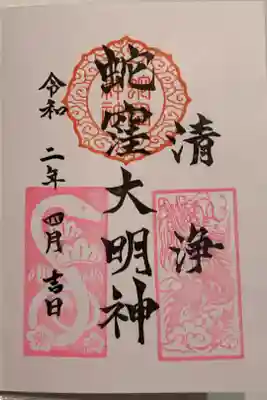 清浄
蛇窪大明神
令和二年四月吉日